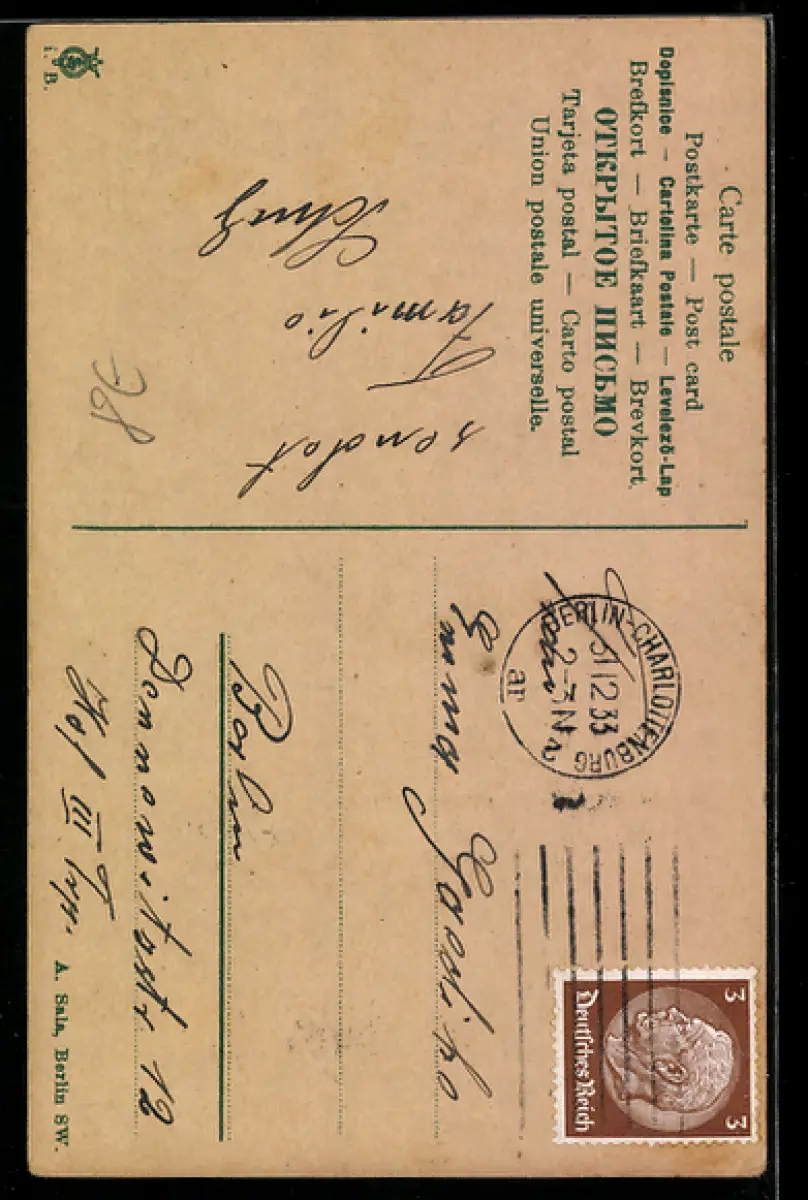 Carte postale
Postkarte — Post card
Dopisnice — Cartolina Postale — Levelező-Lap
Brefkort — Briefkaart — Brevkort.
ОТКРЫТОЕ ПИСЬМО
Tarjeta postal — Carto postal
Union postale universelle.
sendet
Familie
i. B.
BERLIN-CHARLOTTENBURG 2
31.12.33
2-3 N
ar
3 3
Deutsches Reich
Berlin
Dennewitzstr 12
Hof III Trp.
A. Sala, Berlin SW.